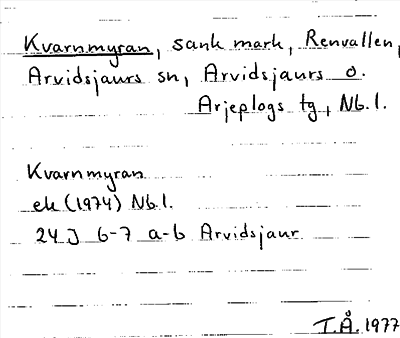 Kvarnmyran, sank mark, Renvallen,
Arvidsjaurs sn, Arvidsjaurs o.
Arjeplogs tg, Nb.l.
Kvarnmyran
ek (1974) Nb.l.
24 J 6-7 a-b Arvidsjaur
T.Å. 1977